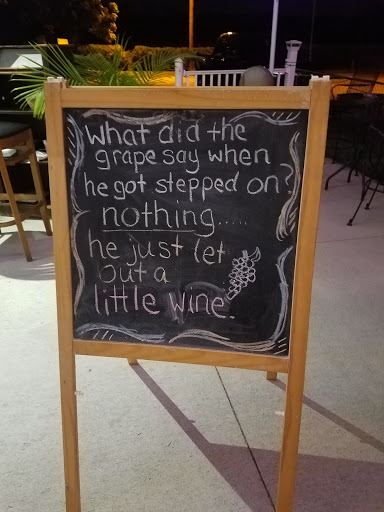 What did the
grape say when
he got stepped on?
nothing.....
he just let
out a
little wine.